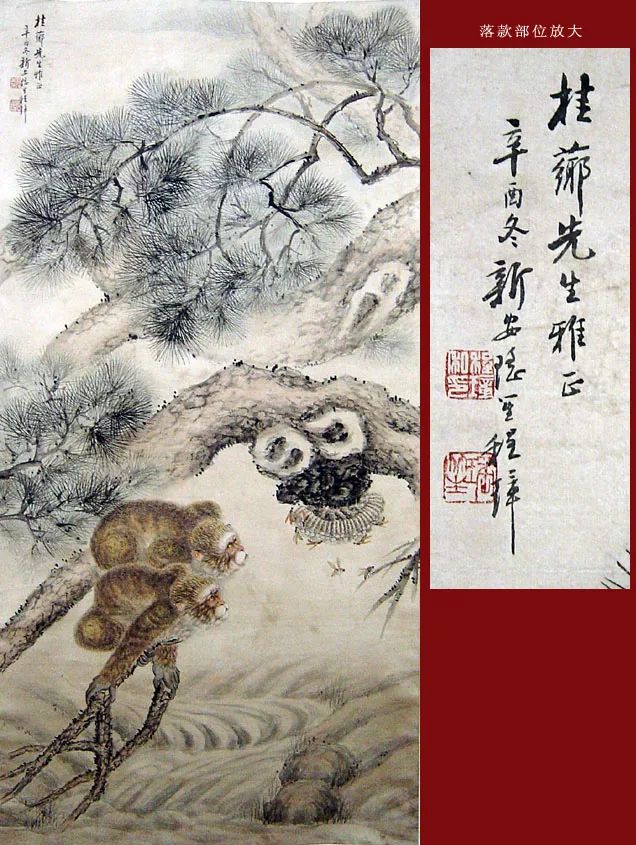 落款部位放大
桂薌先生雅正
辛酉冬新安瑤笙程璋
桂薌先生雅正
辛酉冬新安瑤笙程璋